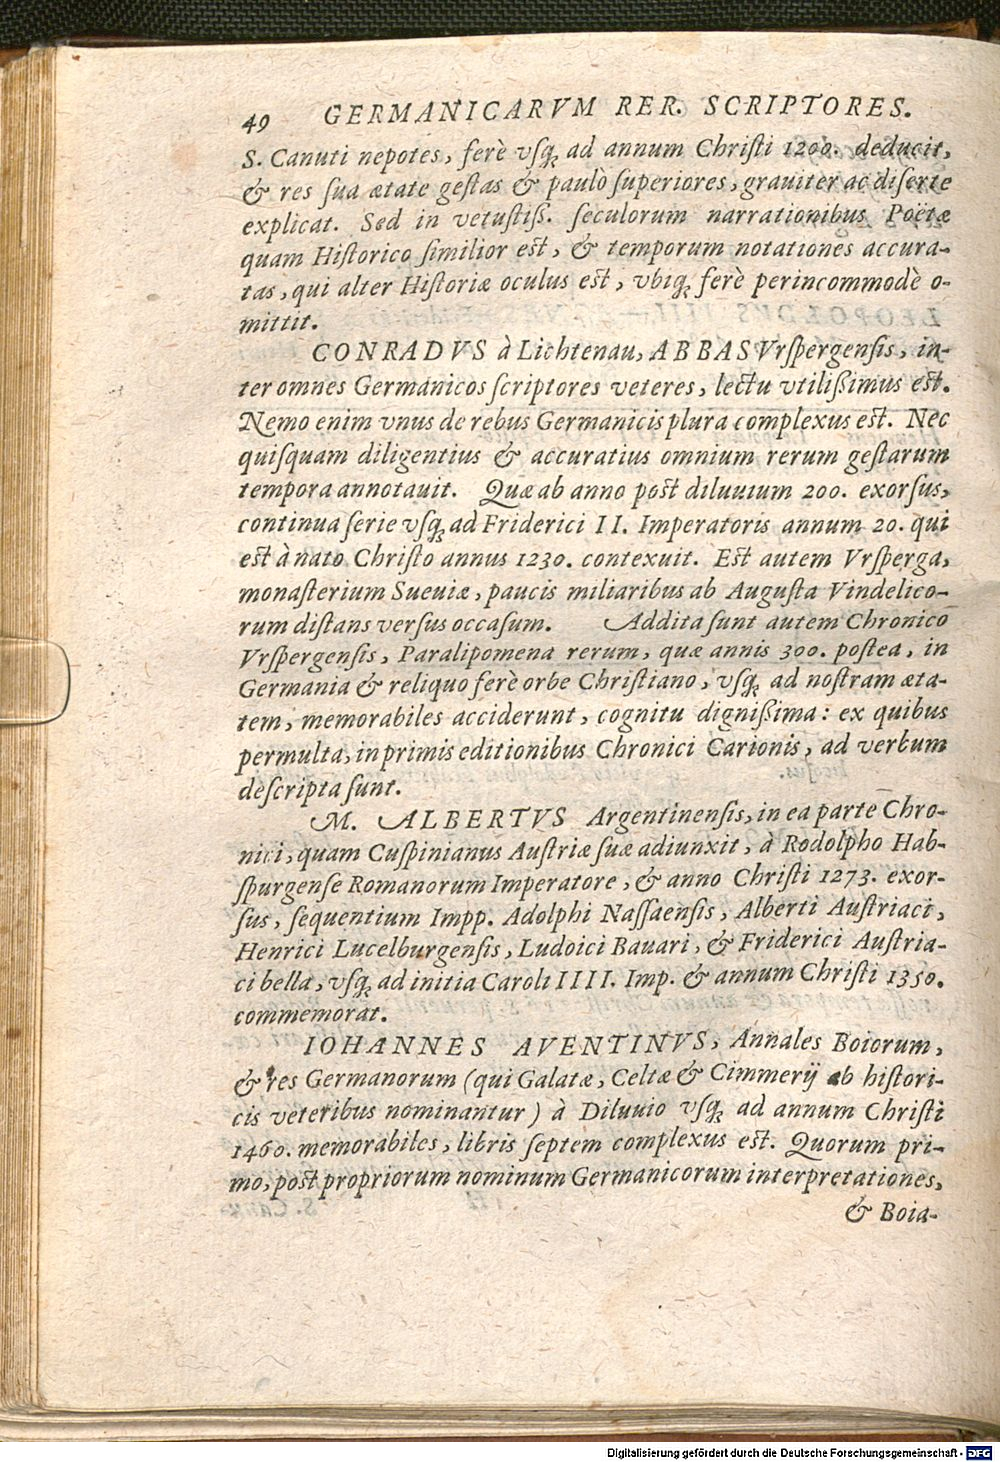 49 GERMANICARVM RER. SCRIPTORES.
S. Canuti nepotes, ferè vſq́; ad annum Chriſti 1200. deducit,
& res ſua ætate geſtas & paulò ſuperiores, grauiter ac diſerte
explicat. Sed in vetuſtiſſ. ſeculorum narrationibus Poëtæ
quam Hiſtorico ſimilior eſt, & temporum notationes accura-
tas, qui alter Hiſtoriæ oculus eſt, vbiq́; ferè perincommodè o-
mittit.
CONRADVS à Lichtenau, ABBAS Vrſpergenſis, in-
ter omnes Germanicos ſcriptores veteres, lectu vtilißimus eſt.
Nemo enim vnus de rebus Germanicis plura complexus est. Nec
quiſquam diligentius & accuratius omnium rerum geſtarum
tempora annotauit. Quæ ab anno poſt diluuium 200. exorſus,
continua ſerie vſq́; ad Friderici II. Imperatoris annum 20. qui
eſt à nato Chriſto annus 1230. contexuit. Eſt autem Vrſperga,
monaſterium Sueuiæ, paucis miliaribus ab Auguſta Vindelico-
rum diſtans verſus occaſum. Addita ſunt autem Chronico
Vrſpergenſis, Paralipomena rerum, quæ annis 300. poſtea, in
Germania & reliquo ferè orbe Chriſtiano, vſq́; ad noſtram æta-
tem, memorabiles acciderunt, cognitu dignißima: ex quibus
permulta, in primis editionibus Chronici Carionis, ad verbum
deſcripta ſunt.
M. ALBERTVS Argentinenſis, in ea parte Chro-
nici, quam Cuſpinianus Auſtriæ ſuæ adiunxit, à Rodolpho Hab-
ſpurgenſe Romanorum Imperatore, & anno Chriſti 1273. exor-
ſus, ſequentium Impp. Adolphi Naſſaenſis, Alberti Auſtriaci,
Henrici Lucelburgenſis, Ludoici Bauari, & Friderici Auſtria-
ci bella, vſq́; ad initia Caroli IIII. Imp. & annum Chriſti 1350.
commemorat.
IOHANNES AVENTINVS, Annales Boiorum,
& res Germanorum (qui Galatæ, Celtæ & Cimmerij ab hiſtori-
cis veteribus nominantur) à Diluuio vſq́; ad annum Chriſti
1460. memorabiles, libris ſeptem complexus eſt. Quorum pri-
mo, poſt propriorum nominum Germanicorum interpretationes,
& Boia-
Digitalisierung gefördert durch die Deutsche Forschungsgemeinschaft - DFG